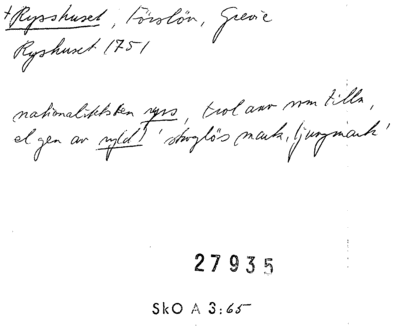 †Rysshuset, Förslöv, Grevie
Ryshuset 1751
nationalitetsbet ryss, trol anv som tilln,
el gen av ryd! 'skoglös mark, ljungmark'
27935
SkO A 3:65